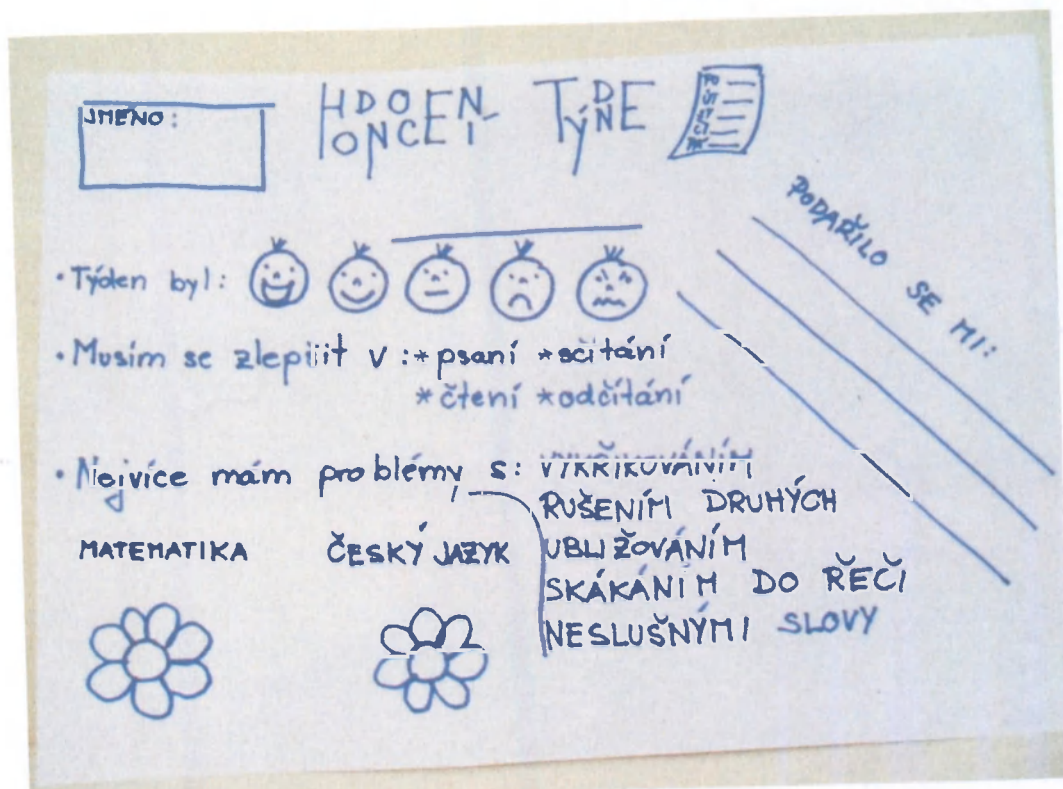 JMÉNO:
HODNOCENÍ TÝDNE
PODAŘILO SE MI:
• Týden byl:
• Musím se zlepšit v: * psaní * sčítání
* čtení * odčítání
• Nejvíce mám problémy s: VYKŘIKOVÁNÍM
RUŠENÍM DRUHÝCH
UBLIŽOVÁNÍM
SKÁKÁNÍM DO ŘEČI
NESLUŠNÝMI SLOVY
MATEMATIKA
ČESKÝ JAZYK